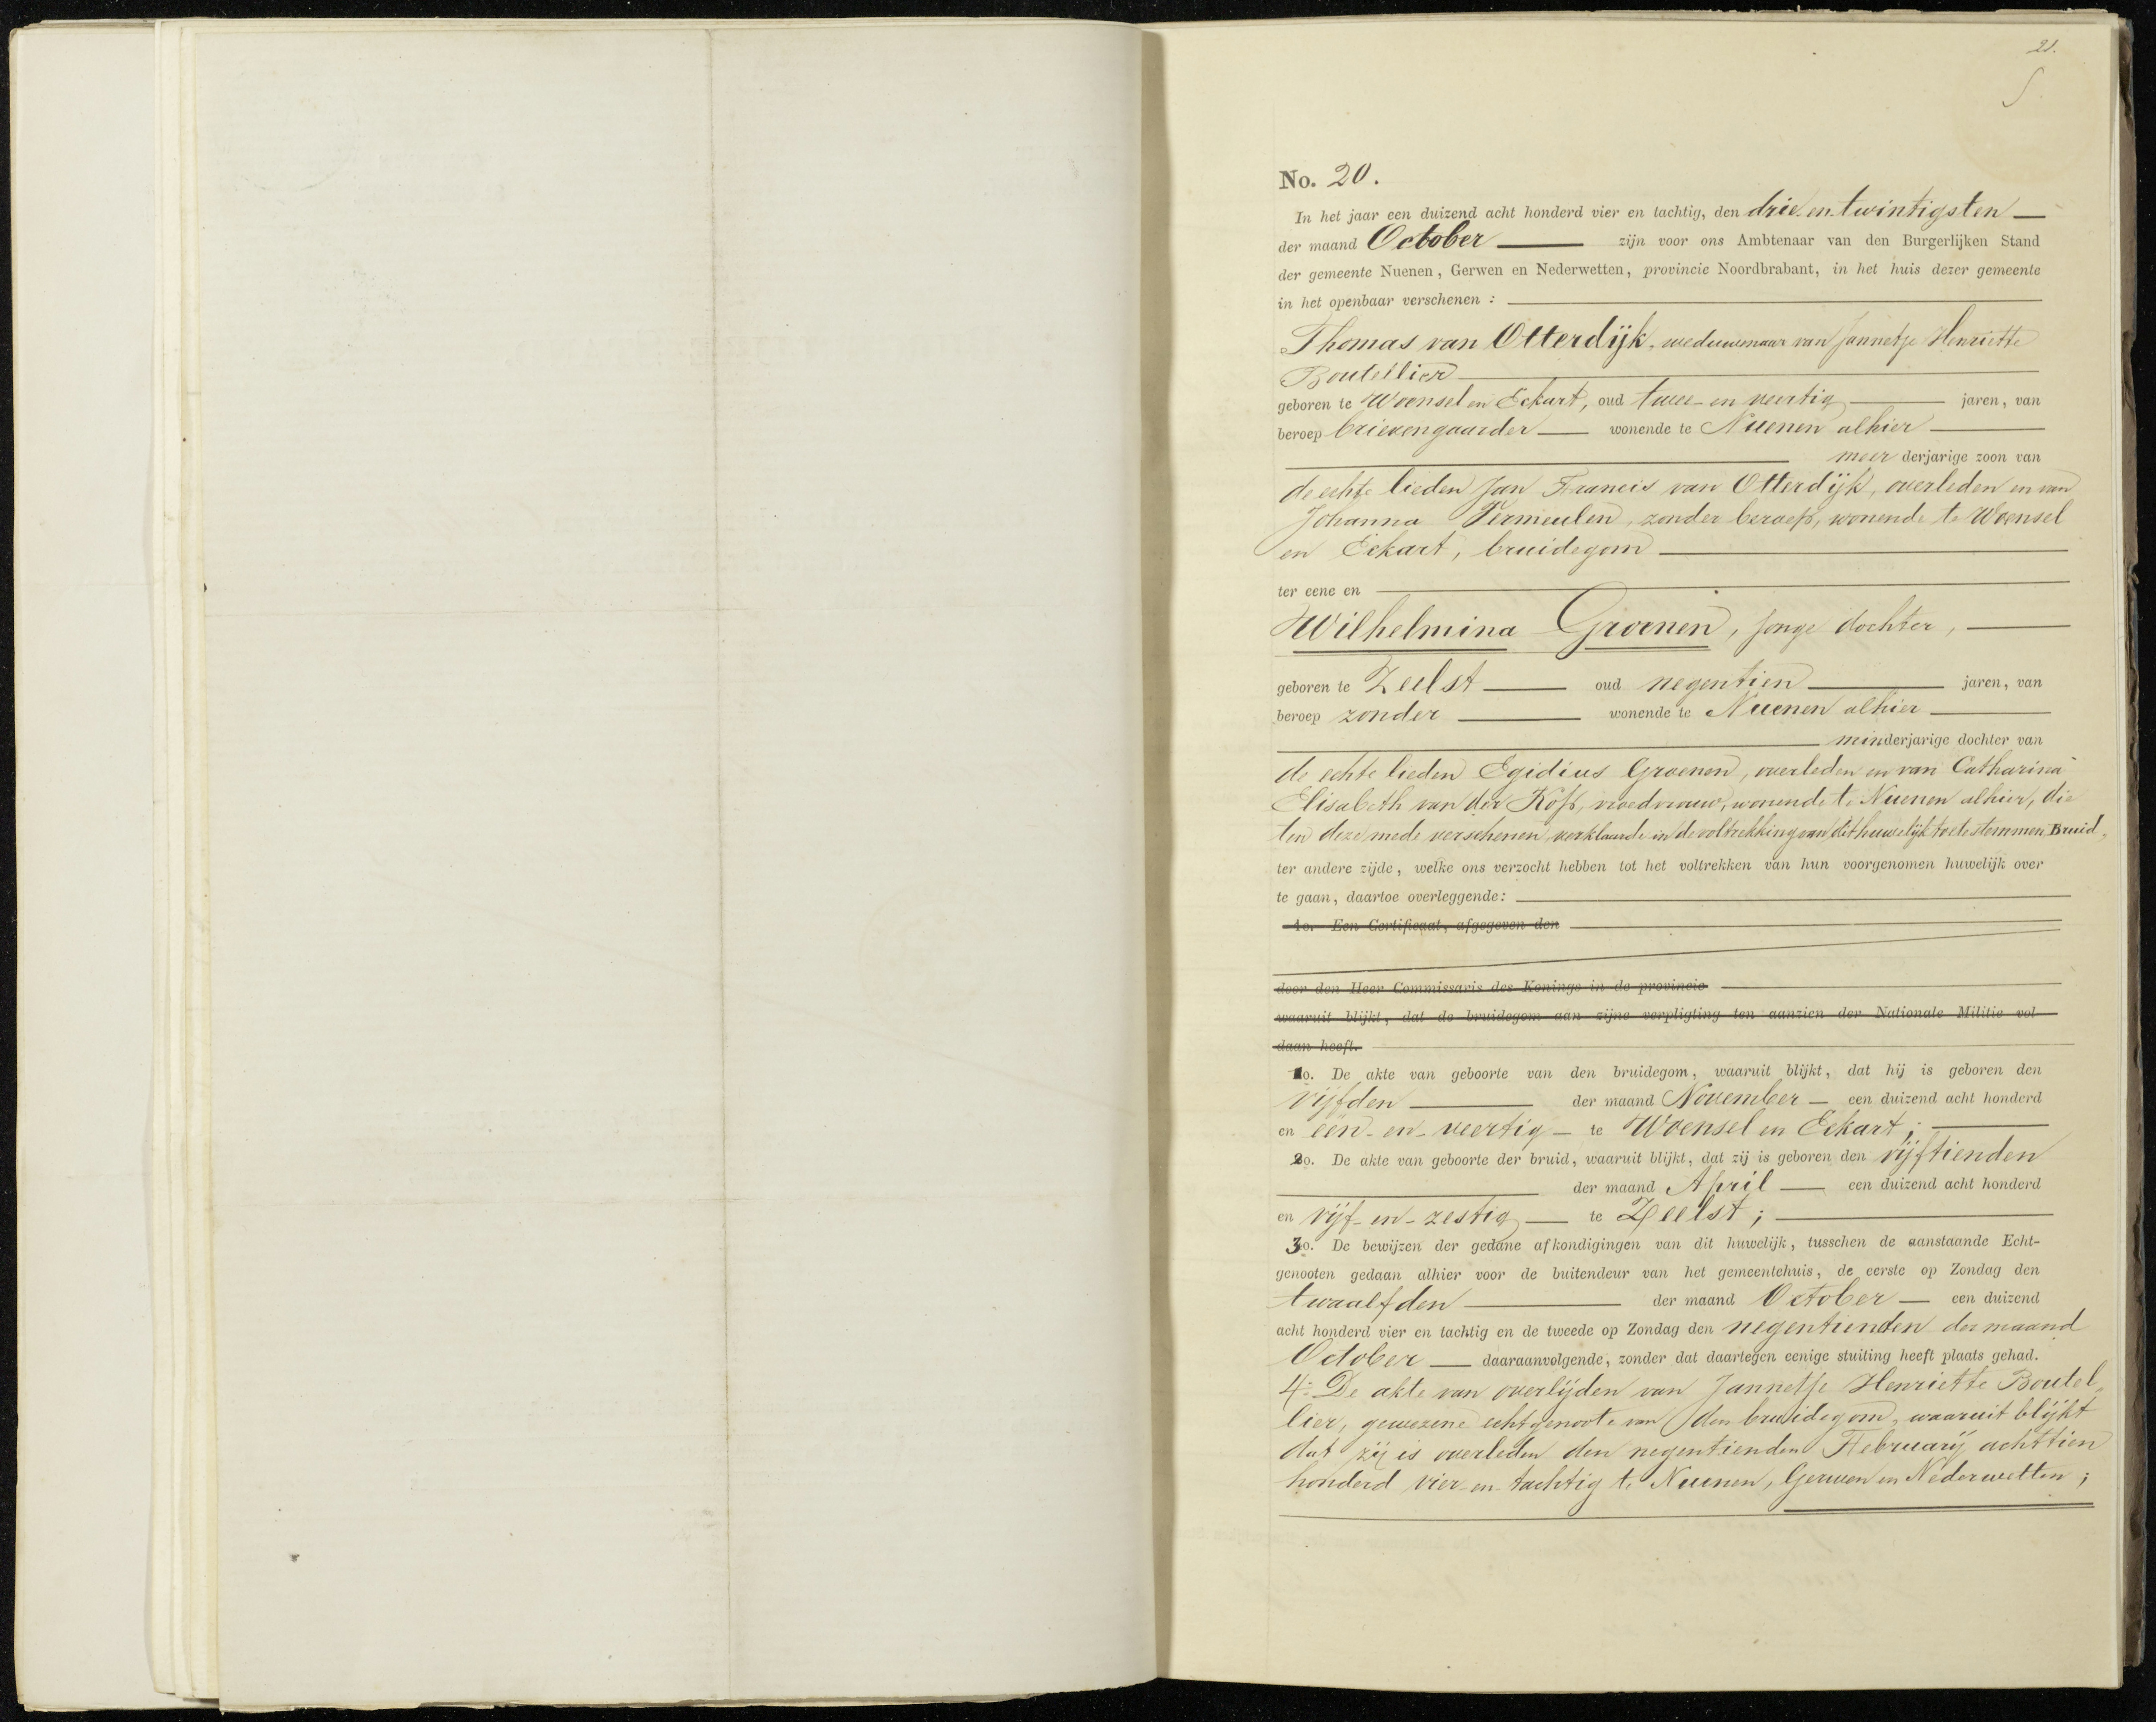 21.
No. 20.
In het jaar een duizend acht honderd vier en tachtig, den drie en twintigsten
der maand October zijn voor ons Ambtenaar van den Burgerlijken Stand
der gemeente Nuenen, Gerwen en Nederwetten, provincie Noordbrabant, in het huis dezer gemeente
in het openbaar verschenen :
Thomas van Otterdijk, weduwenaar van Jannetje Henriette
Boutellier
geboren te Woensel en Eckart, oud twee- en veertig jaren, van
beroep brievengaarder wonende te Nuenen alhier
meerderjarige zoon van
de echte lieden Jan Francis van Otterdijk, overleden en van
Johanna Vermeulen, zonder beroep, wonende te Woensel
en Eckart, bruidegom
ter eene en
Wilhelmina Groenen, jonge dochter,
geboren te Zeelst oud negentien jaren, van
beroep zonder wonende te Nuenen alhier
minderjarige dochter van
de echte lieden Egidius Groenen, overleden en van Catharina
Elisabeth van der Kop, vroedvrouw, wonende te Nuenen alhier, die
ten deze mede verschenen, verklaarde in de voltrekking van dit huwelijk toe te stemmen, Bruid,
ter andere zijde, welke ons verzocht hebben tot het voltrekken van hun voorgenomen huwelijk over
te gaan, daartoe overleggende:
1o. Een Certificaat, afgegeven den
door den Heer Commissaris des Konings in de provincie
waaruit blijkt, dat de bruidegom aan zijne verpligting ten aanzien der Nationale Militie vol
daan heeft.
1o. De akte van geboorte van den bruidegom, waaruit blijkt, dat hij is geboren den
vijfden der maand November een duizend acht honderd
en een- en- veertig te Woensel en Eckart;
2o. De akte van geboorte der bruid, waaruit blijkt, dat zij is geboren den vijftienden
der maand April een duizend acht honderd
en vijf- en- zestig te Zeelst;
3o. De bewijzen der gedane afkondigingen van dit huwelijk, tusschen de aanstaande Echt-
genooten gedaan alhier voor de buitendeur van het gemeentehuis, de eerste op Zondag den
twaalfden der maand October een duizend
acht honderd vier en tachtig en de tweede op Zondag den negentienden der maand
October daaraanvolgende, zonder dat daartegen eenige stuiting heeft plaats gehad.
4o. De akte van overlijden van Jannetje Henriette Boutel,
lier, gewezene echtgenoote van den bruidegom, waaruit blijkt
dat zij is overleden den negentienden Februarij achttien
honderd vier- en- tachtig te Nuenen, Gerwen en Nederwetten;